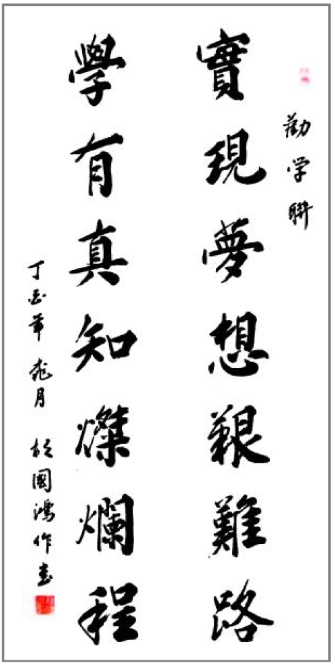 勸学聯
實現夢想艱難路
學有真知燦爛程
丁酉年 月 國鴻作書